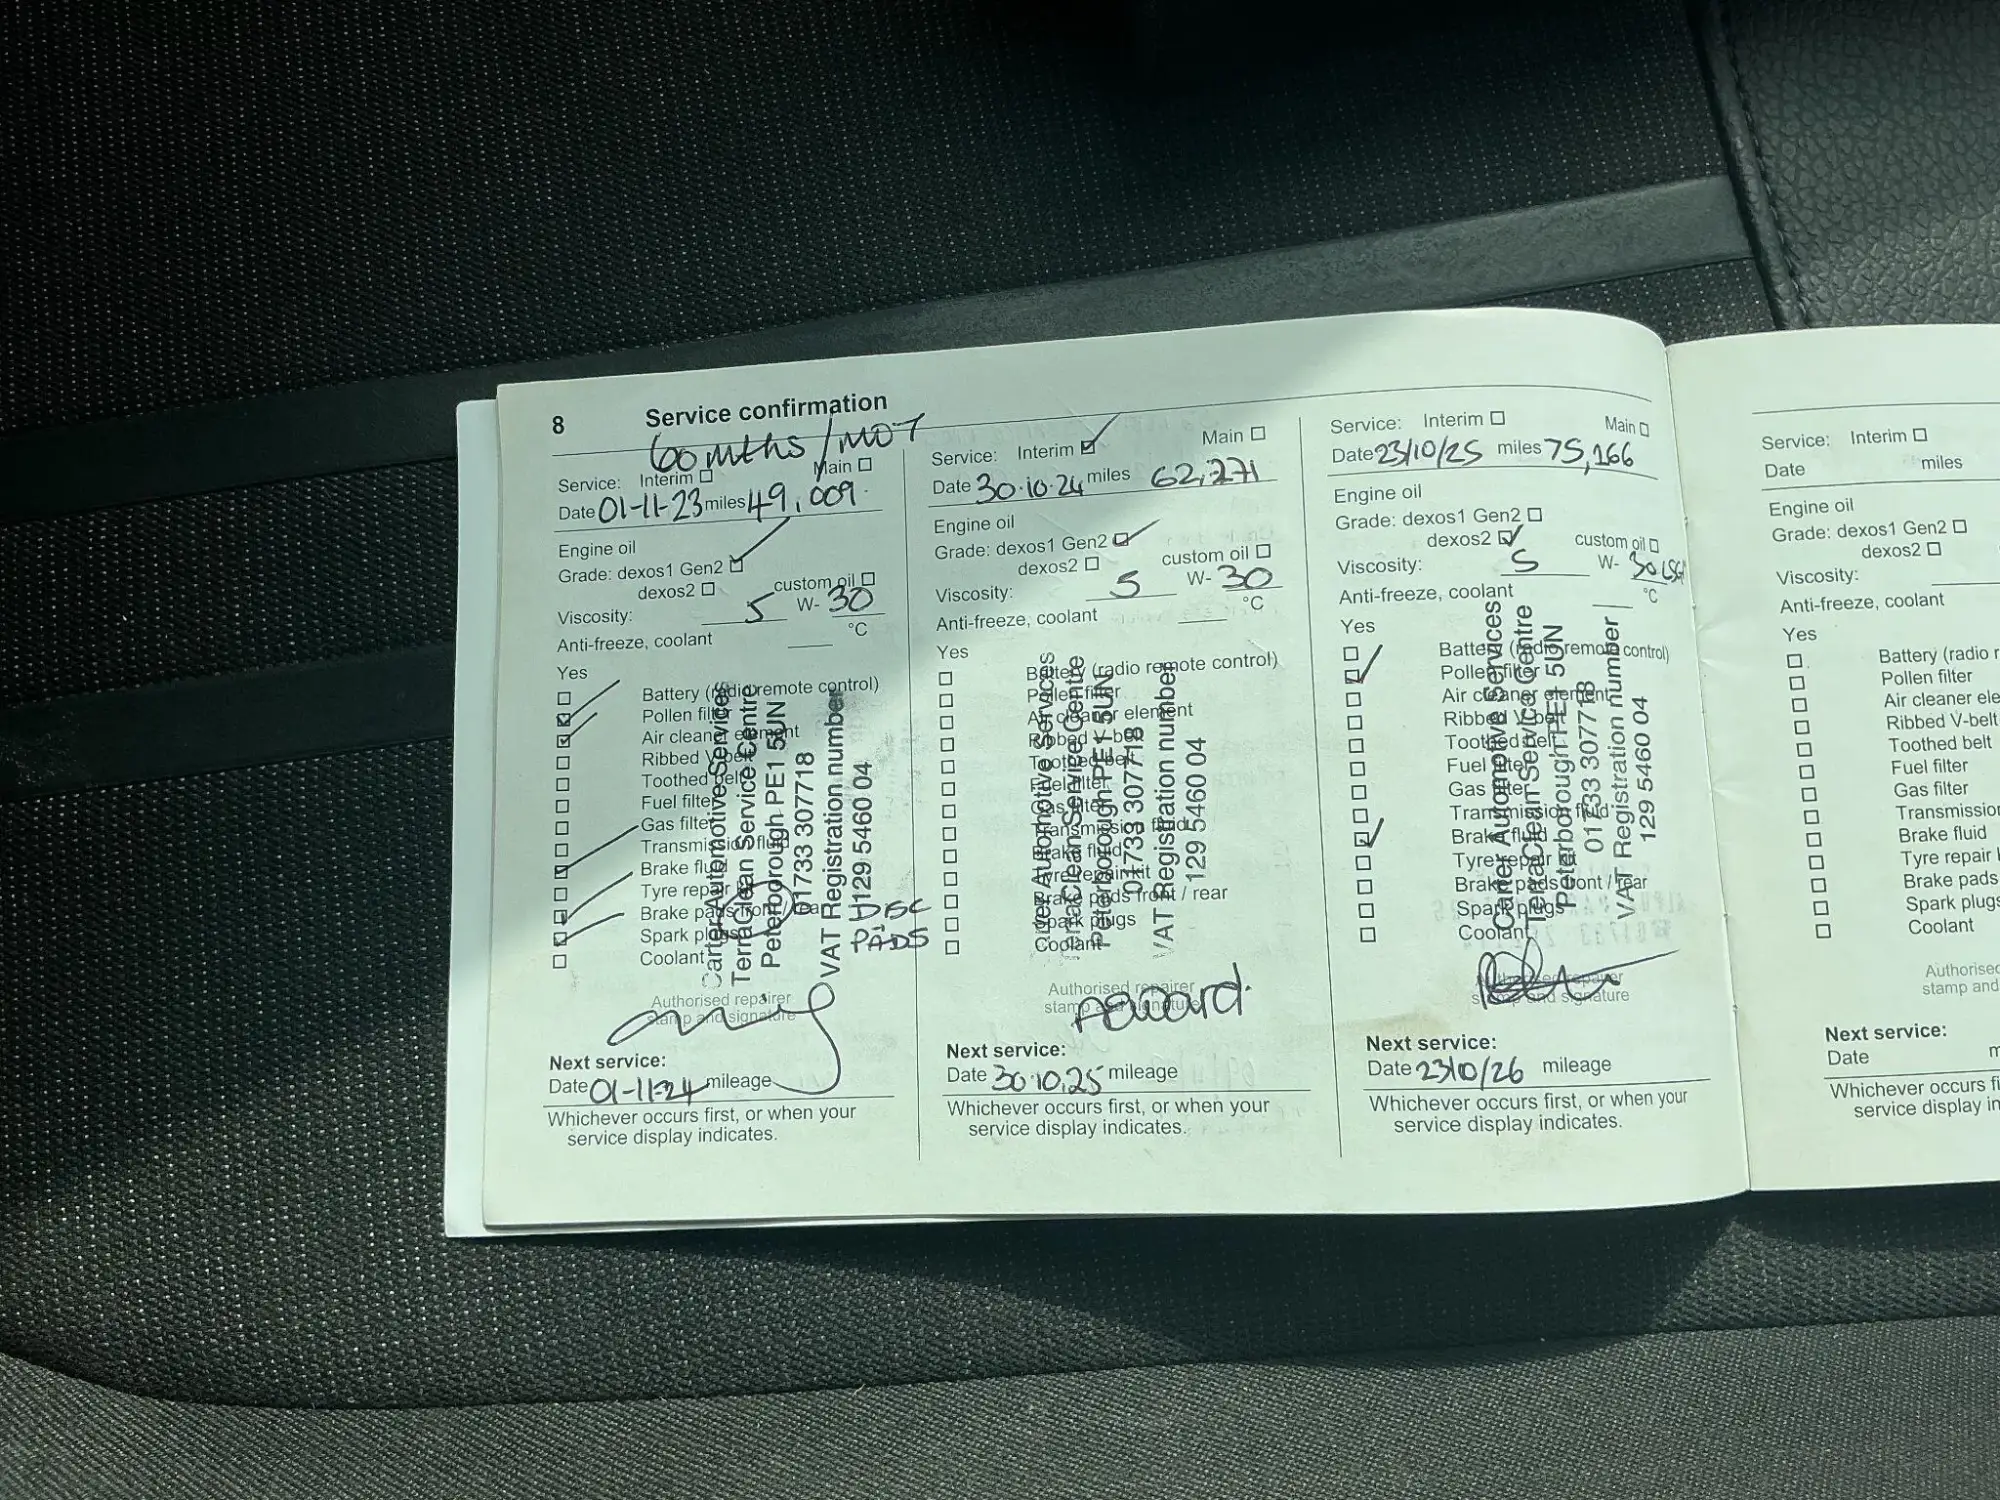 8 Service confirmation
60 mths / MOT
Service: Interim Main
Date 01-11-23 miles 49,009
Engine oil
Grade: dexos1 Gen2
dexos2 custom oil
Viscosity: 5 W- 30
Anti-freeze, coolant °C
Yes
Battery (radio remote control)
Pollen filter
Air cleaner element
Ribbed V-belt
Toothed belt
Fuel filter
Gas filter
Transmission fluid
Brake fluid
Tyre repair
Brake pads front / rear
Spark plugs
Coolant
DISC
PADS
Carter Automotive Services
TerraClean Service Centre
Peterborough PE1 5UN
01733 307718
VAT Registration number
129 5460 04
Authorised repairer
stamp and signature
Next service:
Date 01-11-24 mileage
Whichever occurs first, or when your
service display indicates.
Service: Interim Main
Date 30.10.24 miles 62,271
Engine oil
Grade: dexos1 Gen2
dexos2 custom oil
Viscosity: 5 W- 30
Anti-freeze, coolant °C
Yes
Battery (radio remote control)
Pollen filter
Air cleaner element
Ribbed V-belt
Toothed belt
Fuel filter
Gas filter
Transmission fluid
Brake fluid
Tyre repair kit
Brake pads front / rear
Spark plugs
Coolant
Automotive Services
TerraClean Service Centre
Peterborough PE1 5UN
01733 307718
VAT Registration number
129 5460 04
Authorised repairer
stamp and signature
Next service:
Date 30.10.25 mileage
Whichever occurs first, or when your
service display indicates.
Service: Interim Main
Date 23/10/25 miles 75,166
Engine oil
Grade: dexos1 Gen2
dexos2 custom oil
Viscosity: 5 W- 30
Anti-freeze, coolant °C
Yes
Battery (radio remote control)
Pollen filter
Air cleaner element
Ribbed V-belt
Toothed belt
Fuel filter
Gas filter
Transmission fluid
Brake fluid
Tyre repair kit
Brake pads front / rear
Spark plugs
Coolant
Carter Automotive Services
TerraClean Service Centre
Peterborough PE1 5UN
01733 307718
VAT Registration number
129 5460 04
Authorised repairer
stamp and signature
Next service:
Date 23/10/26 mileage
Whichever occurs first, or when your
service display indicates.
Service: Interim
Date miles
Engine oil
Grade: dexos1 Gen2
dexos2
Viscosity:
Anti-freeze, coolant
Yes
Battery (radio r
Pollen filter
Air cleaner ele
Ribbed V-belt
Toothed belt
Fuel filter
Gas filter
Transmission
Brake fluid
Tyre repair k
Brake pads
Spark plugs
Coolant
Authorised
stamp and
Next service:
Date m
Whichever occurs fi
service display in